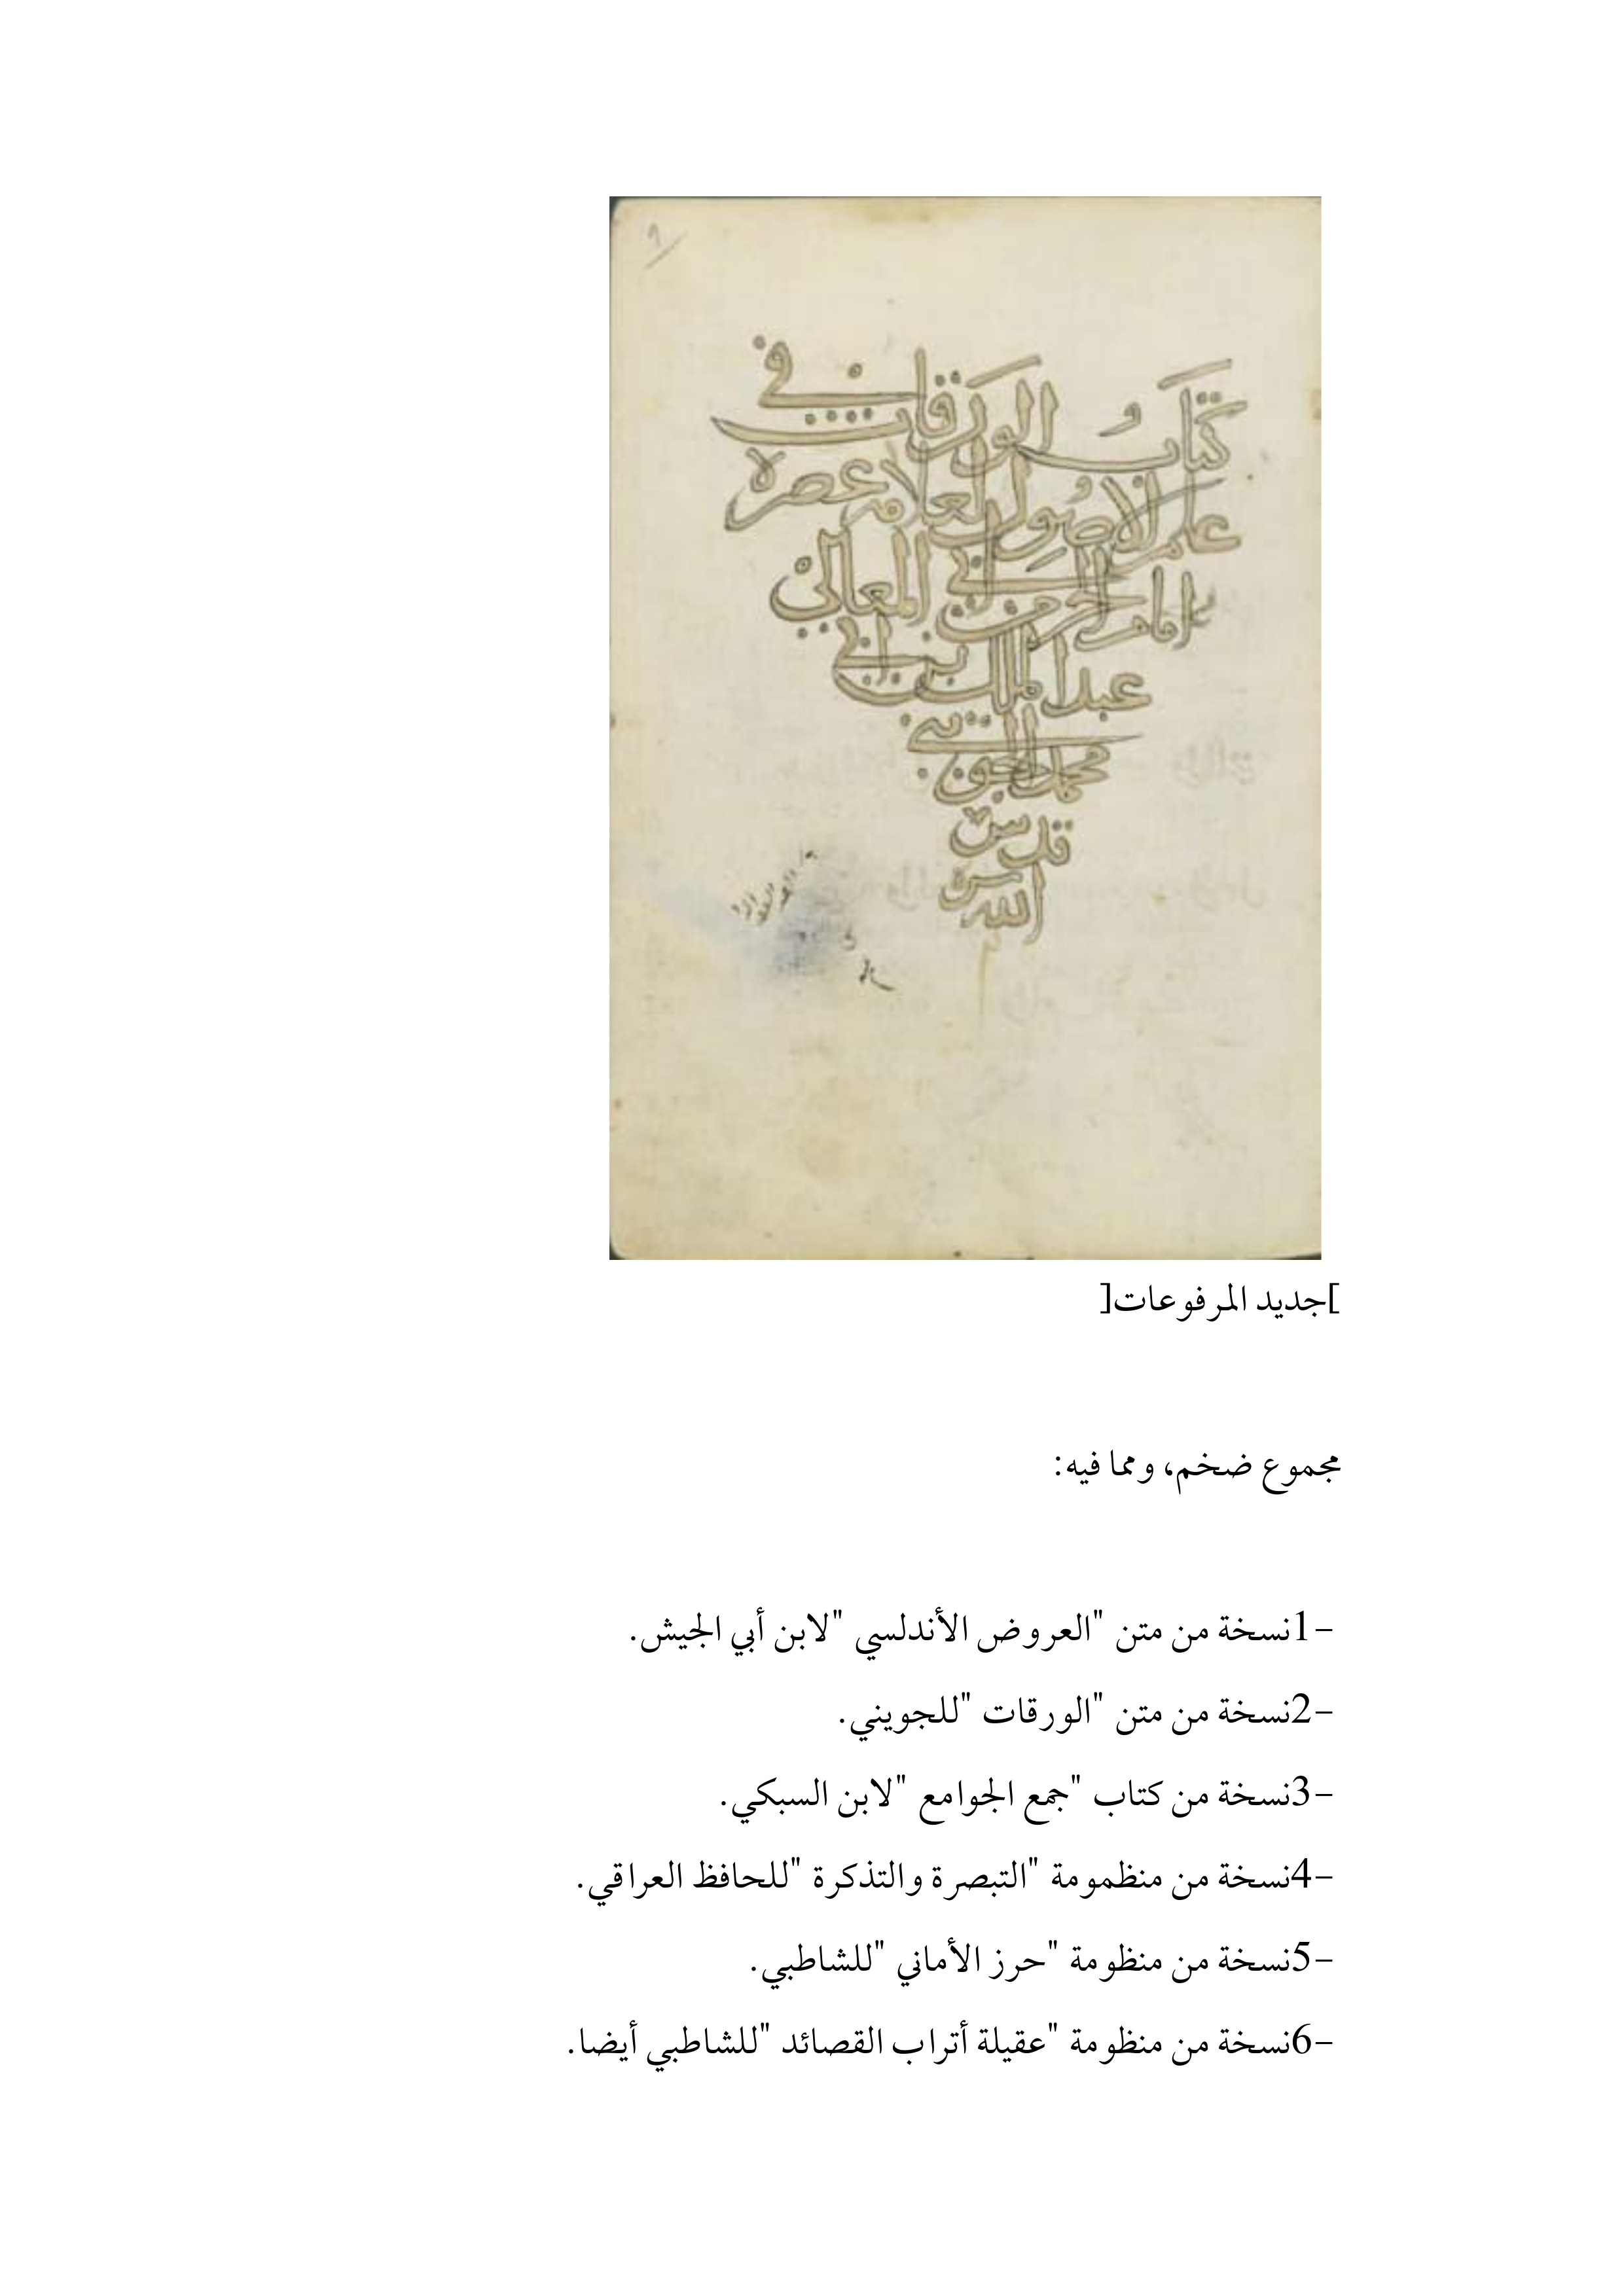 كتاب الورقات في
علم الاصول لعلامة عصره
امام الحرمين ابي المعالي
عبد الملك بن ابي
محمد الجويني
قدس
الله سره
]جديد المرفوعات[
مجموع ضخم، ومما فيه:
-1نسخة من متن "العروض الأندلسي "لابن أبي الجيش.
-2نسخة من متن "الورقات "للجويني.
-3نسخة من كتاب "جمع الجوامع "لابن السبكي.
-4نسخة من منظمومة "التبصرة والتذكرة "للحافظ العراقي.
-5نسخة من منظومة "حرز الأماني "للشاطبي.
-6نسخة من منظومة "عقيلة أتراب القصائد "للشاطبي أيضا.